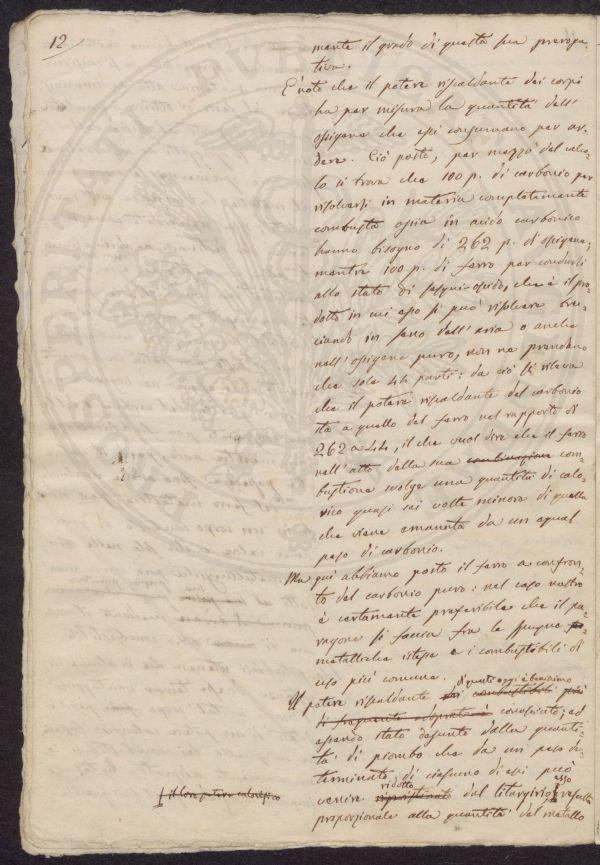 12
mente il grado di questa sua preroga-
tiva.
È noto che il potere riscaldante dei corpi
ha per misura la quantità dell'
ossigeno che essi consumano per ar-
dere. Ciò posto, per mezzo del calco-
lo si trova che 100 p. di carbonio per
risolversi in materia completamente
combusta ossia in acido carbonico
hanno bisogno di 262 p. d'ossigeno;
mentre 100 p. di ferro per condursi
allo stato di sesqui-ossido, che è il pro-
dotto in cui esso si può risolvere bru-
ciando in seno dell'aria o anche
nell'ossigeno puro, non ne prendono
che sole 44 parti: da ciò si rileva
che il potere riscaldante del carbonio
sta a quello del ferro nel rapporto di
262 a 44, il che vuol dire che il ferro
nell'atto della sua combinazione com-
bustione svolge una quantità di calo-
rico quasi sei volte minore di quella
che viene emanata da un egual
peso di carbonio.
Ma qui abbiamo posto il ferro a confron-
to del carbonio puro: nel caso nostro
è certamente preferibile che il pa-
ragone si faccia fra le spugne
metalliche istesse e i combustibili di
uso più comune.
di questi oggi è benissimo
Il potere riscaldante dei combustibili più
di frequente adoperati è conosciuto; ed
essendo stato desunto dalla quanti-
tà di piombo che da un peso de-
terminato di ciascuno di essi può
ridotto
esso
venire ripristinato dal litargirio, resulta
proporzionale alla quantità del metallo
il loro potere calorifico
PVBLICO